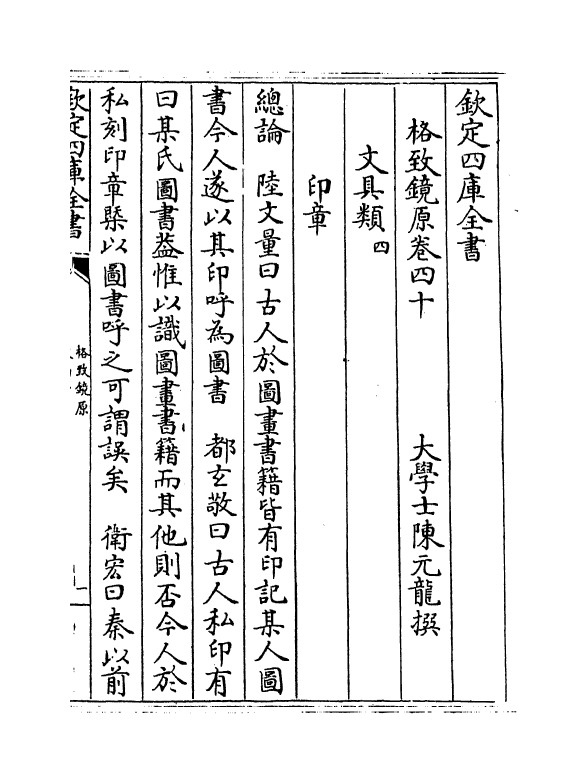 欽定四庫全書
格致鏡原卷四十
大學士陳元龍撰
文具類四
印章
總論　陸文量曰古人於圖畫書籍皆有印記某人圖
書今人遂以其印呼為圖書　都玄敬曰古人私印有
曰某氏圖書葢惟以識圖畫書籍而其他則否今人於
私刻印章槩以圖書呼之可謂誤矣　衛宏曰秦以前
欽定四庫全書
格致鏡原